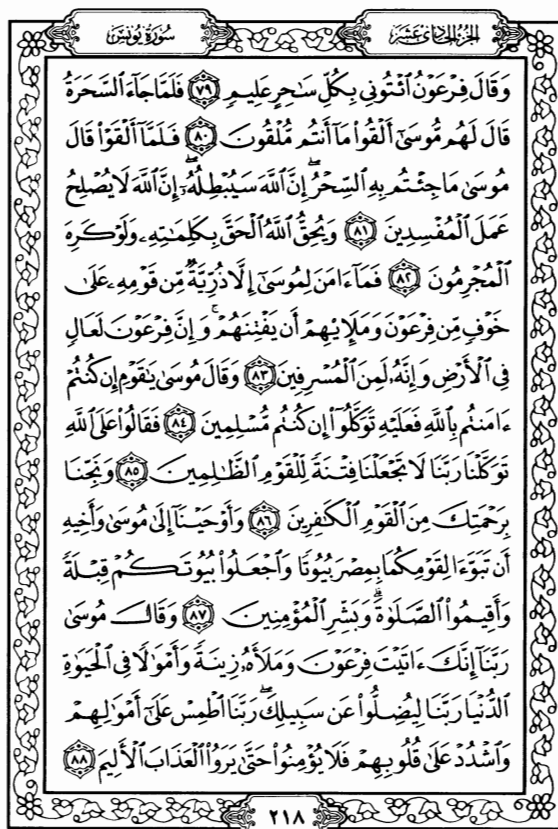 سُورَةُ يُونُسَ
الجُزْءُ الحَادِى عَشَرَ
وَقَالَ فِرْعَوْنُ ٱئْتُونِى بِكُلِّ سَـٰحِرٍ عَلِيمٍ ٧٩ فَلَمَّا جَآءَ ٱلسَّحَرَةُ
قَالَ لَهُم مُّوسَىٰٓ أَلْقُوا۟ مَآ أَنتُم مُّلْقُونَ ٨٠ فَلَمَّآ أَلْقَوْا۟ قَالَ
مُوسَىٰ مَا جِئْتُم بِهِ ٱلسِّحْرُ ۖ إِنَّ ٱللَّهَ سَيُبْطِلُهُۥٓ ۖ إِنَّ ٱللَّهَ لَا يُصْلِحُ
عَمَلَ ٱلْمُفْسِدِينَ ٨١ وَيُحِقُّ ٱللَّهُ ٱلْحَقَّ بِكَلِمَـٰتِهِۦ وَلَوْ كَرِهَ
ٱلْمُجْرِمُونَ ٨٢ فَمَآ ءَامَنَ لِمُوسَىٰٓ إِلَّا ذُرِّيَّةٌ مِّن قَوْمِهِۦ عَلَىٰ
خَوْفٍ مِّن فِرْعَوْنَ وَمَلَإِي۟هِمْ أَن يَفْتِنَهُمْ ۚ وَإِنَّ فِرْعَوْنَ لَعَالٍ
فِى ٱلْأَرْضِ وَإِنَّهُۥ لَمِنَ ٱلْمُسْرِفِينَ ٨٣ وَقَالَ مُوسَىٰ يَـٰقَوْمِ إِن كُنتُمْ
ءَامَنتُم بِٱللَّهِ فَعَلَيْهِ تَوَكَّلُوٓا۟ إِن كُنتُم مُّسْلِمِينَ ٨٤ فَقَالُوا۟ عَلَى ٱللَّهِ
تَوَكَّلْنَا رَبَّنَا لَا تَجْعَلْنَا فِتْنَةً لِّلْقَوْمِ ٱلظَّـٰلِمِينَ ٨٥ وَنَجِّنَا
بِرَحْمَتِكَ مِنَ ٱلْقَوْمِ ٱلْكَـٰفِرِينَ ٨٦ وَأَوْحَيْنَآ إِلَىٰ مُوسَىٰ وَأَخِيهِ
أَن تَبَوَّءَا لِقَوْمِكُمَا بِمِصْرَ بُيُوتًا وَٱجْعَلُوا۟ بُيُوتَكُمْ قِبْلَةً
وَأَقِيمُوا۟ ٱلصَّلَوٰةَ ۗ وَبَشِّرِ ٱلْمُؤْمِنِينَ ٨٧ وَقَالَ مُوسَىٰ
رَبَّنَآ إِنَّكَ ءَاتَيْتَ فِرْعَوْنَ وَمَلَأَهُۥ زِينَةً وَأَمْوَٰلًا فِى ٱلْحَيَوٰةِ
ٱلدُّنْيَا رَبَّنَا لِيُضِلُّوا۟ عَن سَبِيلِكَ ۖ رَبَّنَا ٱطْمِسْ عَلَىٰٓ أَمْوَٰلِهِمْ
وَٱشْدُدْ عَلَىٰ قُلُوبِهِمْ فَلَا يُؤْمِنُوا۟ حَتَّىٰ يَرَوُا۟ ٱلْعَذَابَ ٱلْأَلِيمَ ٨٨
٢١٨